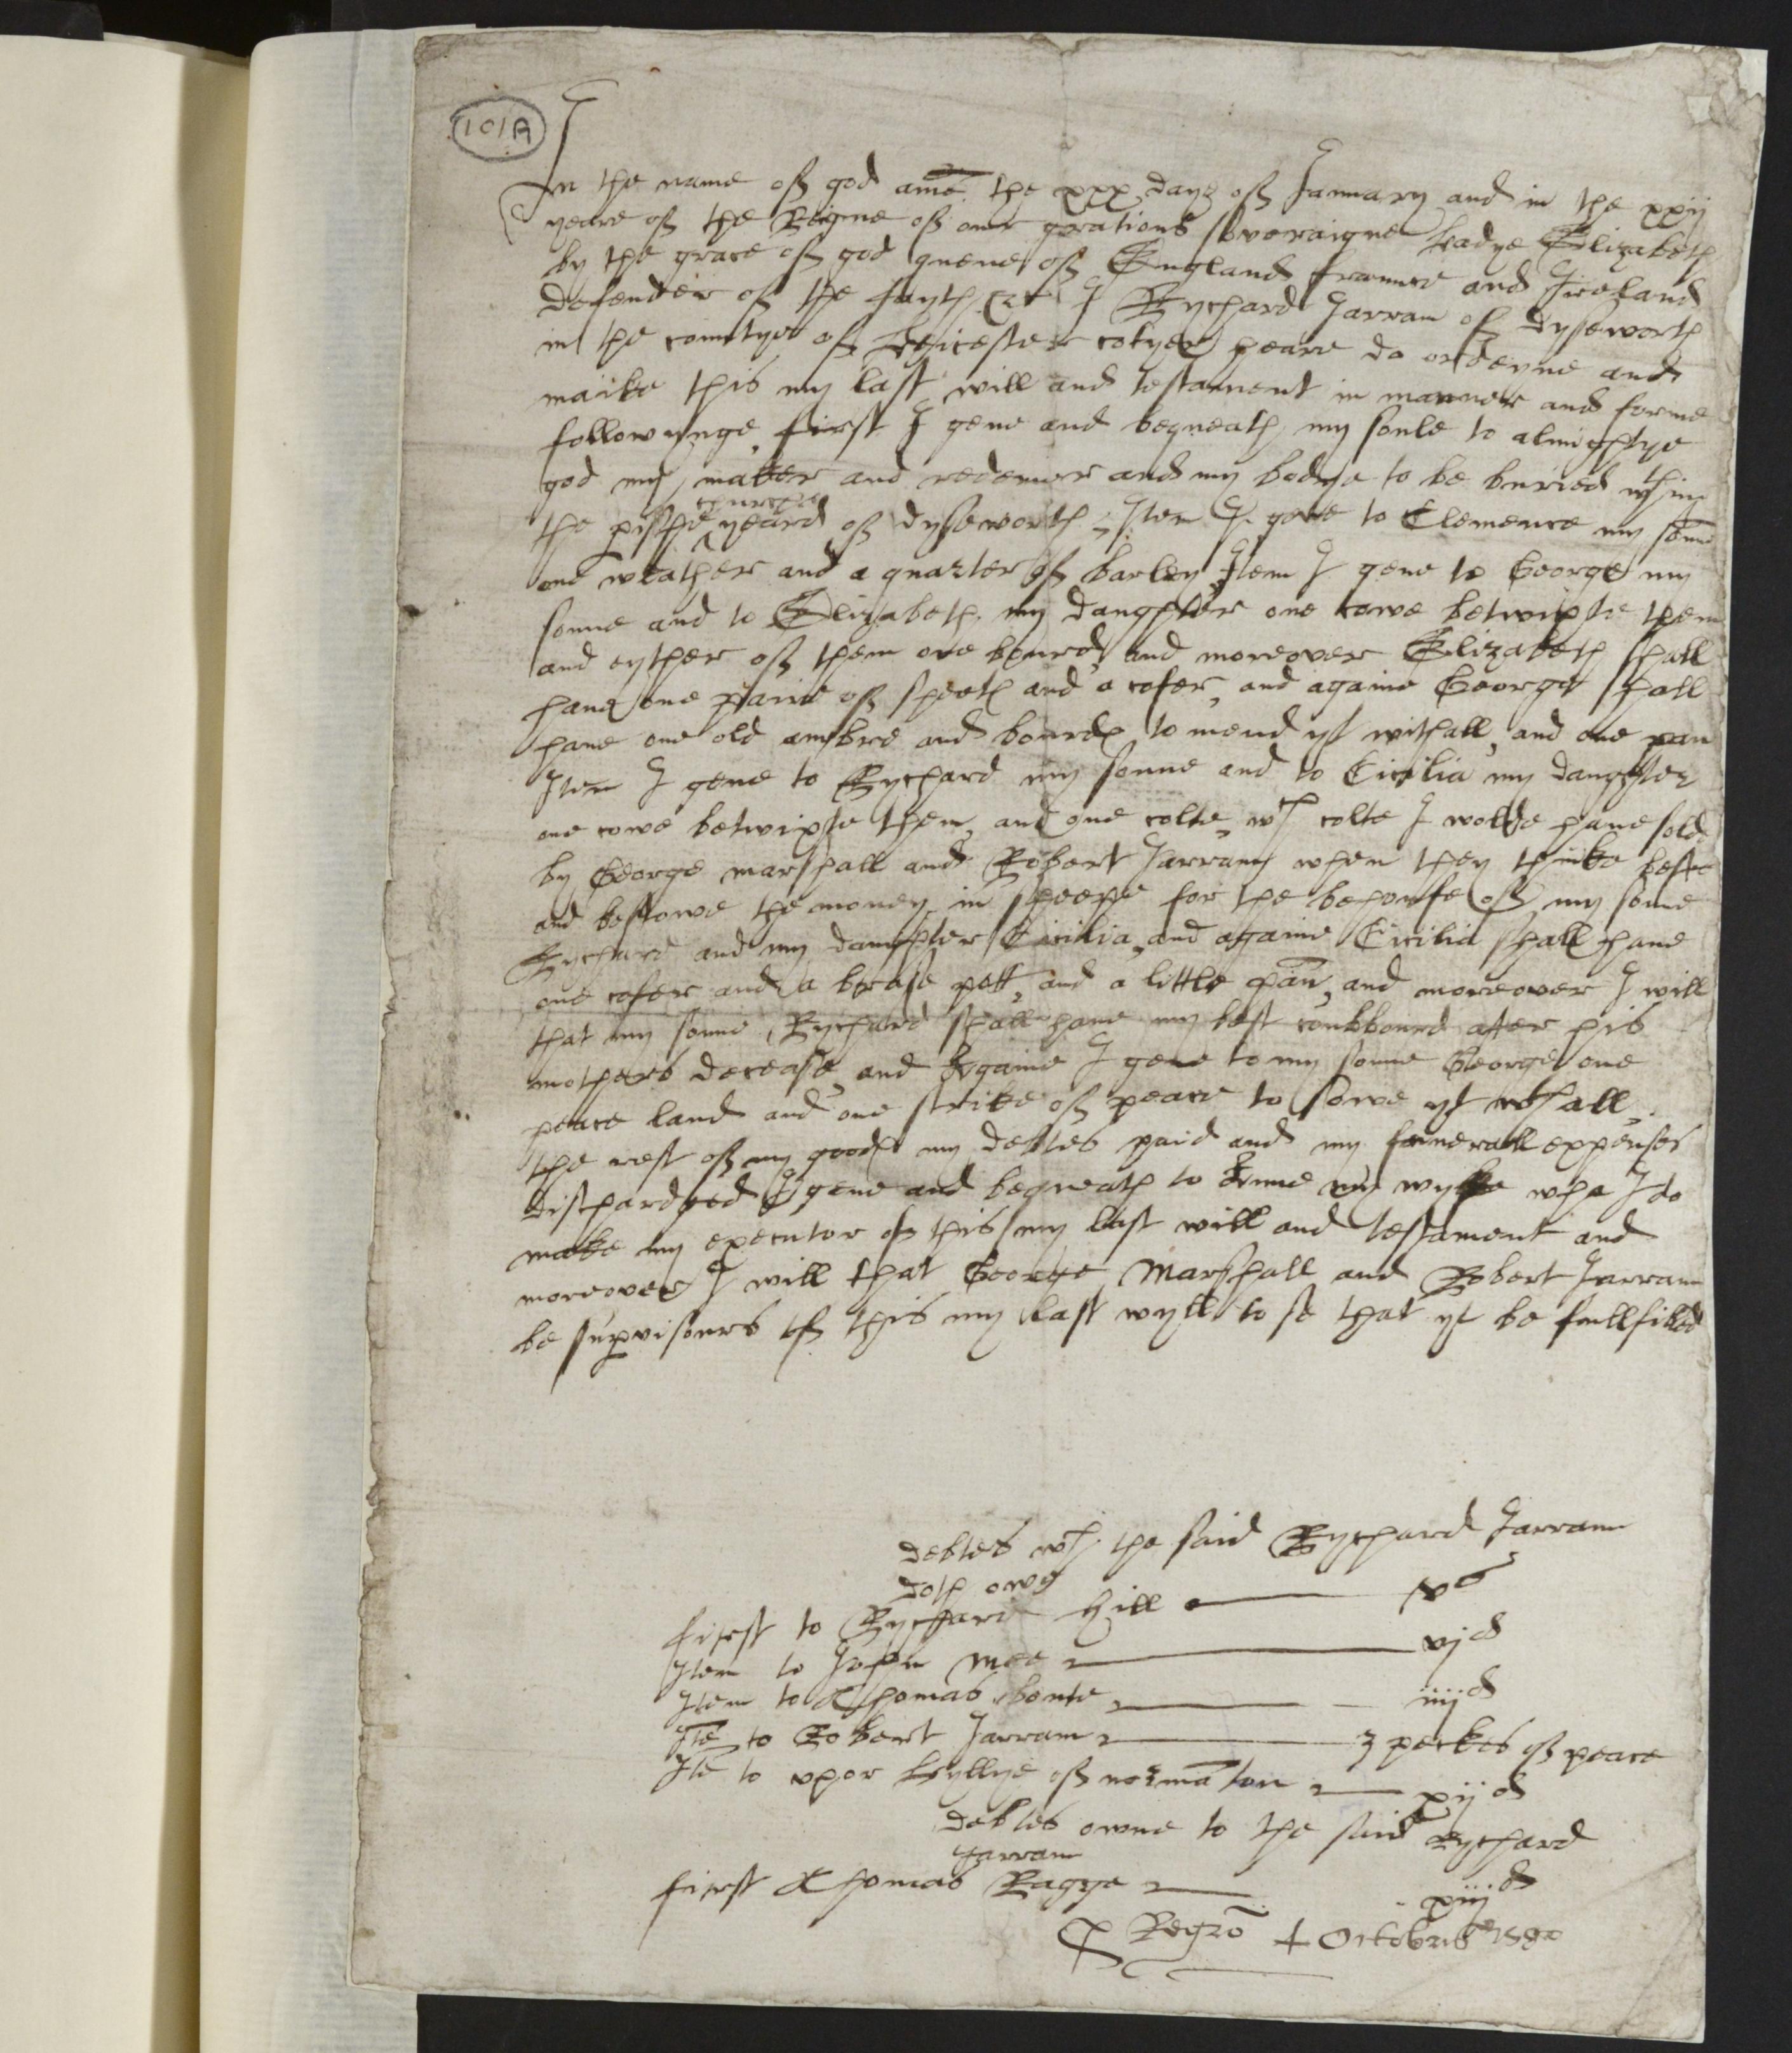 101A
In the name off god amē the xxx daye off January and in the xxij
yeare off the Reigne off our gratious soveraigne Ladye Elizabeth
by the grace off god quene off England fraunce and Ireland
defender off the fayth &c I Rychard Jarram off dyseworth
in the countye off Leicester cotyer heare do ordeyne and
maike this my last will and testament in manner and forme
followynge, first I geve and bequeath my soule to almightye
god my maker and redemer and my bodye to be buried wthin
the pishe churche yeard off dyseworth, Item I geve to Clemence my sonne
one weather and a quarter off barley Item I geve to George my
sonne and to Elizabeth my daughter one cowe betwixte them
and eyther off them one bourd, and moreover Elizabeth shall
have one paire off sheets and a cofer, and againe George shall
have one old ambre and bourds to mend yt withall, and one pan
Item I geve to Rychard my sonne and to Cicilia my daughter
one cowe betwixte them, and one colte, wch colte I wolde have sold
by George marshall and Robert Jarram when they thinke beste
and bestowe the money in sheepe for the behoufe off my sonne
Rychard and my daughter Cicilia, and againe Cicilia shall have
one cofer and a brasse pott, and a little pan, and moreover I will
that my sonne Rychard shall have my best coubbourd after his
mothers decease, and Againe I geve to my sonne George one
pease land and one strike off pease to sowe yt wthall,
the rest off my goods my debtes paid and my funerall expenses
dischardged I geve and bequeath to Anne my wyffe who I do
make my executor off this my last will and testament and
moreover I will that George Marshall and Robert Jarram
be supvisours off this my last wyll to se that yt be fullfilled
debtes wch the said Rychard Jarram
doth owe
first to Rychard Hill vs
Item to John Mee vjd
Item to Thomas bonte iiijd
Itē to Robert Jarram 3 peckes off pease
Itē to vpor Lyllye off normāton xijd
debtes owne to the said Rychard
Jarram
first Thomas Ragge xiijd
Regrō 4 Octobris 1580